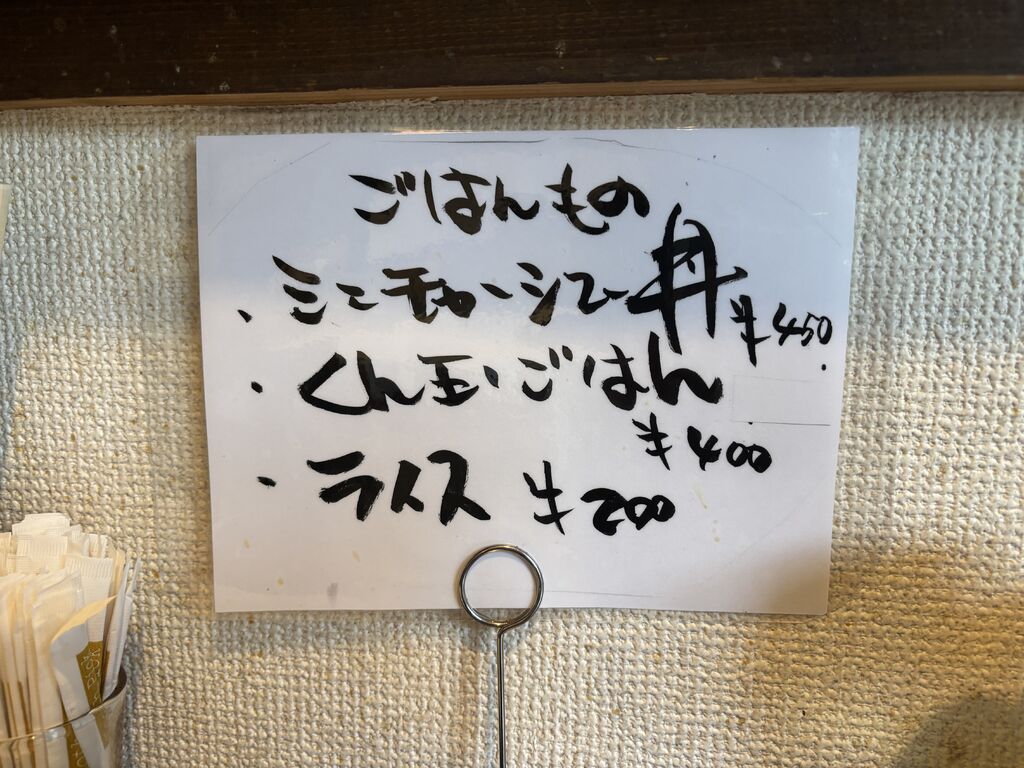 ごはんもの
・ミニチャーシュー丼 ¥450
・くん玉ごはん
¥400
・ライス ¥200